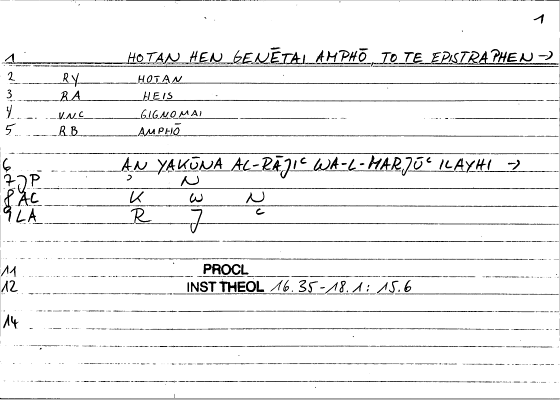 1
1 HOTAN HEN GENĒTAI AMPHŌ, TO TE EPISTRAPHEN →
2 RY HOTAN
3 RA HEIS
4 VNC GIGNOMAI
5 RB AMPHŌ
6 AN YAKŪNA AL-RĀJIᶜ WA-L-MARJŪᶜ ILAYHI →
7 JP ʾ N
8 AC K W N
9 LA R J ᶜ
11 PROCL
12 INST THEOL 16.35-18.1: 15.6
14